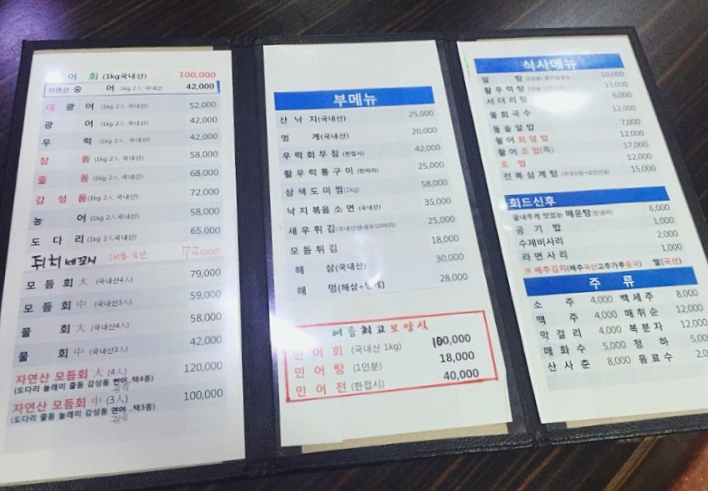 어 회 (1kg국내산) 100,000
자연산 숭 어 1kg 2人 국내산 42,000
대 광 어 (1kg 2人 국내산) 52,000
광 어 (1kg 2人 국내산) 42,000
우 럭 (1kg 2人 국내산) 42,000
참 돔 (1kg 2人 국내산) 58,000
줄 돔 (1kg 2人 국내산) 68,000
감 성 돔 (1kg 2人 국내산) 72,000
농 어 (1kg 2人 국내산) 58,000
도 다 리 (1kg 2人국내산) 65,000
모 듬 회 大 (국내산4人) 79,000
모 듬 회 中 (국내산3人) 59,000
물 회 大 (국내산4人) 58,000
물 회 中 (국내산3人) 42,000
자연산 모듬회 大 (4人) 120,000
(도다리 줄돔 놀래미 감성돔 택4종)
자연산 모듬회 中 (3人) 100,000
(도다리 줄돔 놀래미 감성돔 택3종)
부메뉴
산 낙 지(국내산) 25,000
멍 게(국내산) 20,000
우럭회무침(한접시) 42,000
활우럭통구이 25,000
삼색도미찜(1kg) 58,000
낙지볶음소면 (국내산) 35,000
새우튀김 25,000
모듬튀김 18,000
해 삼(국내산) 30,000
해 멍(해삼+멍게) 28,000
여름최고보양식
민 어 회 (국내산 1kg) 100,000
민 어 탕 (1인분) 18,000
민 어 전 (한접시) 40,000
식사메뉴
알 탕 10,000
활우럭탕
서더리탕 6,000
물회국수 12,000
돌솥알밥 7,000
활어회덮밥 12,000
활어초밥(특) 17,000
초 밥 12,000
전복삼계탕 15,000
회드신후
끝내주게 맛있는 매운탕 6,000
공 기 밥 1,000
수제비사리 2,000
라면사리 1,000
※ 배추김치(배추국산고추가루중국) 쌀(국산)
주 류
소 주 4,000 백세주 8,000
맥 주 4,000 매취순 12,000
막걸리 4,000 복분자 12,000
매화수 5,000 청 하 5,000
산사춘 8,000 음료수 2,000